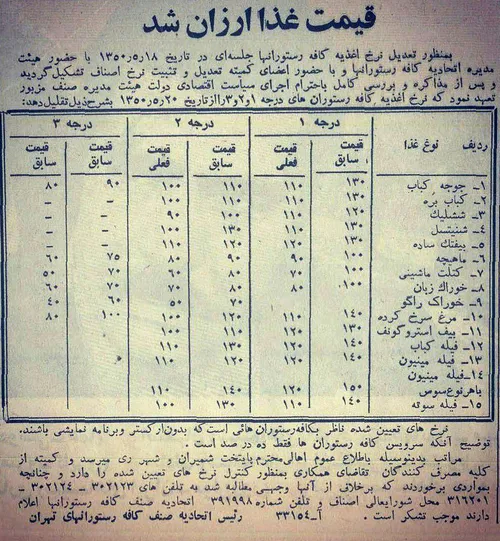 قیمت غذا ارزان شد
بمنظور تعدیل نرخ اغذیه کافه رستورانها جلسه‌ای در تاریخ ۱۳۵۰ر۵ر۱۸ با حضور هیئت
مدیره اتحادیه کافه رستورانها و با حضور اعضای کمیته تعدیل و تثبیت نرخ اصناف تشکیل گردید
و پس از مذاکره و بررسی کامل باحترام اجرای سیاست اقتصادی دولت هیئت مدیره صنف مزبور
تعهد نمود که نرخ اغذیه کافه رستوران های درجه ۱و۲و۳راازتاریخ ۱۳۵۰ر۵ر۲۰ بشرح‌ذیل‌تقلیل‌دهد:
ردیف نوع غذا درجه ۱ درجه ۲ درجه ۳
قیمت سابق قیمت فعلی قیمت سابق قیمت فعلی قیمت سابق قیمت فعلی
۱- جوجه کباب ۱۳۰ ۱۱۰ ۱۱۰ ۱۰۰ ۹۰ ۸۰
۲- کباب بره ۱۳۰ ۱۱۰ ۱۱۰ ۱۰۰ - -
۳- ششلیک ۱۲۰ ۱۱۰ ۱۰۰ ۹۰ - -
۴- شنیتسل ۱۳۰ ۱۱۰ ۱۳۰ ۱۰۰ - -
۵- بیفتک ساده ۱۳۰ ۱۱۰ ۱۲۰ ۱۱۰ - -
۶- ماهیچه ۱۰۰ ۹۰ ۹۰ ۸۰ ۷۵ ۶۰
۷- کتلت ماشینی ۱۰۰ ۷۰ ۸۰ ۶۰ ۷۰ ۵۰
۸- خوراک زبان ۱۰۰ ۸۰ ۸۰ ۷۰ ۷۰ ۶۰
۹- خوراک راگو ۵۰ ۷۰ ۶۰ ۴۰
۱۰- مرغ سرخ کرده ۱۴۰ ۱۱۰ ۱۲۰ ۱۱۰ ۱۰۰ ۸۰
۱۱- بیف استروگونف ۱۳۰ ۱۱۰ ۱۱۰ ۱۰۰
۱۲- فیله کباب ۱۴۰ ۱۲۰ ۱۳۰ ۱۱۰
۱۳- فیله مینیون ۱۴۰ ۱۲۰ ۱۲۰ ۱۱۰
۱۴- فیله مینیون
باهرنوع‌سوس ۱۵۰ ۱۲۰ ۱۴۰ ۱۱۰
۱۵- فیله سوته ۱۴۰ ۱۱۰ ۱۳۰ ۱۰۰
نرخ های تعیین شده ناظر بکافه‌رستوران هائی است‌که بدون‌ارکستر وبرنامه نمایشی باشند.
توضیح آنکه سرویس کافه رستوران ها فقط ده در صد است.
مراتب بدینوسیله باطلاع عموم اهالی‌محترم پایتخت شمیران و شهر ری میرسد و کمیته از
کلیه مصرف کنندگان تقاضای همکاری بمنظور کنترل نرخ های تعیین شده را دارد و چنانچه
بمواردی برخوردند که برخلاف از آنها وجهی مطالبه شد به تلفن های ۳۰۲۱۲۳ - ۳۰۲۱۲۴ -
۳۱۶۲۰۱ محل شورایعالی اصناف و تلفن شماره ۳۹۱۹۹۸ اتحادیه صنف کافه رستورانها اعلام
دارند موجب تشکر است. آ-۳۳۱۵۴ رئیس اتحادیه صنف کافه رستورانهای تهران